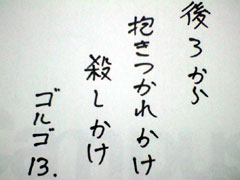 後ろから
抱きつかれかけ
殺しかけ
ゴルゴ13.